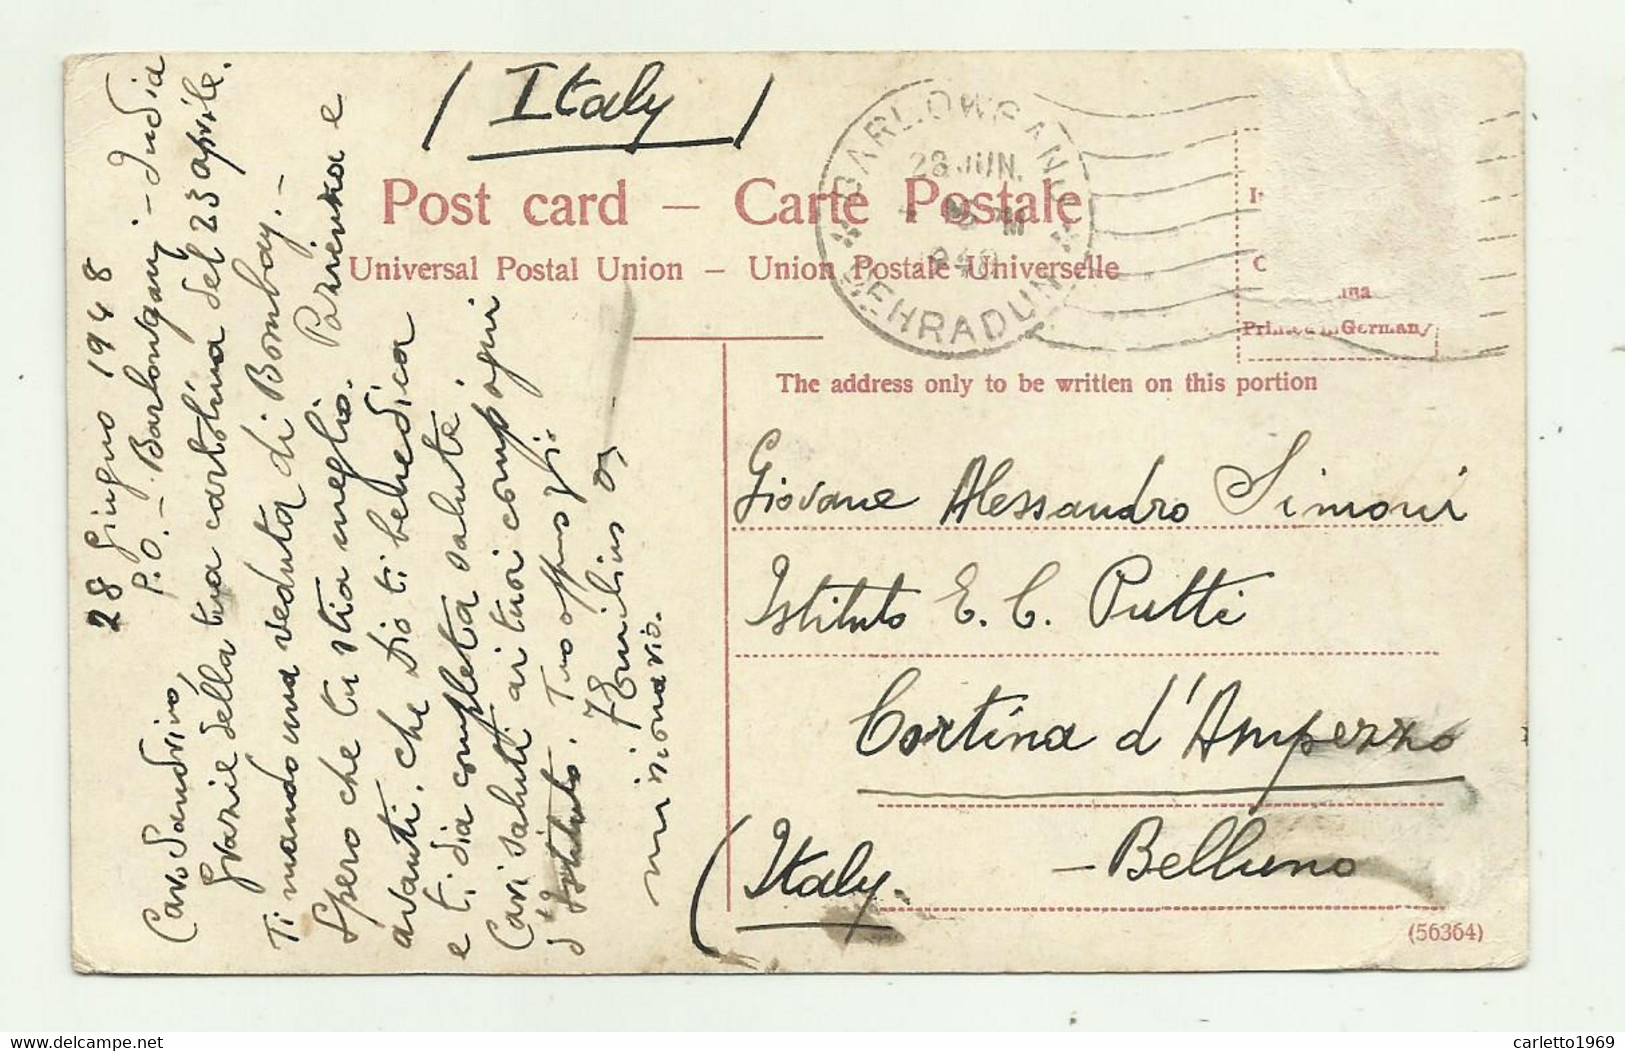 ( Italy )
Post card – Carte Postale
Universal Postal Union – Union Postale Universelle
BARLOWGANJ
28 JUN.
DEHRADUN
Printed in Germany
The address only to be written on this portion
Giovane Alessandro Simoni
Istituto E. C. Putti
Cortina d'Ampezzo
– Belluno
(Italy.
(56364)
28 Giugno 1948
P.O. – Barlowganj – India
Caro Sandrino,
Grazie della tua cartolina del 23 aprile.
Ti mando una veduta di Bombay. –
Spero che tu stia meglio. Pazienza e
avanti, che Dio ti benedica
e ti dia completa salute.
Cari saluti ai tuoi compagni
d'Istituto. Tuo
Emilius
missionario.
carletto1969
www.delcampe.net